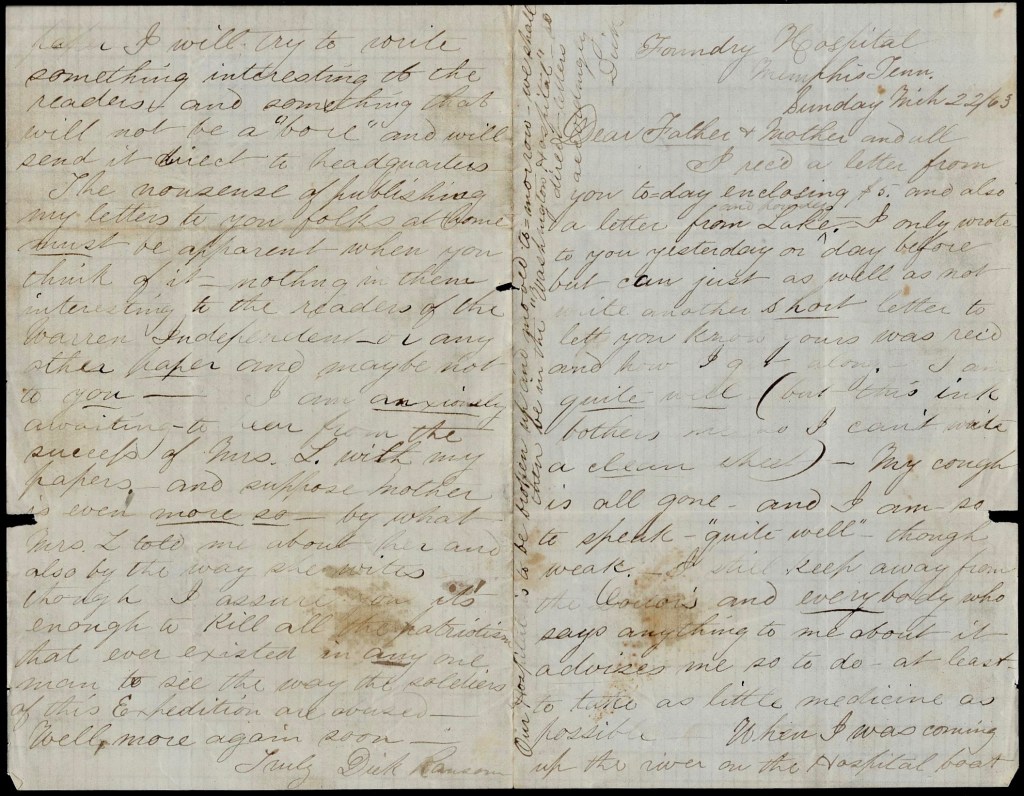 Foundry Hospital
Memphis Tenn.
Sunday Mch 22/63
Dear Father & Mother and all
I rec'd a letter from
you to=day enclosing $5. and also
a letter from Lake. — I only wrote
to you yesterday or day before
but can just as well as not
write another short letter to
lett you know yours was rec'd
and how I get along — I am
quite well (but this ink
bothers me so I can't write
a clean sheet) — My cough
is all gone - and I am - so
to speak - "quite well" - though
weak. — I still keep away from
the and everybody who
says anything to me about it
advises me so to do - at least -
to take as little medicine as
possible When I was coming
up the river on the Hospital boat
I will try to write
something interesting to the
readers and something that
will not be a "bore" and will
send it direct to headquarters
The nonsense of publishing
my letters to you folks at home
must be apparent when you
think of it — nothing in them
interesting to the readers of the
Warren Independent - or any
other paper and maybe not
to you — I am anxiously
awaiting to hear from the
success of Mrs. L. with my
papers - and suppose mother
is even more so — by what
Mrs. L told me about her and
also by the way she writes
though I assure you it's
enough to kill all the patriotism
that ever existed in any one
man to see the way the soldiers
of this Expedition are abused —
Well, more again soon —
Truly Dick Ransom
Our Hospital is to be broken up and moved to=morrow - we shall
then be in the "Washington Hospital" so
direct letters
accordingly
Dick